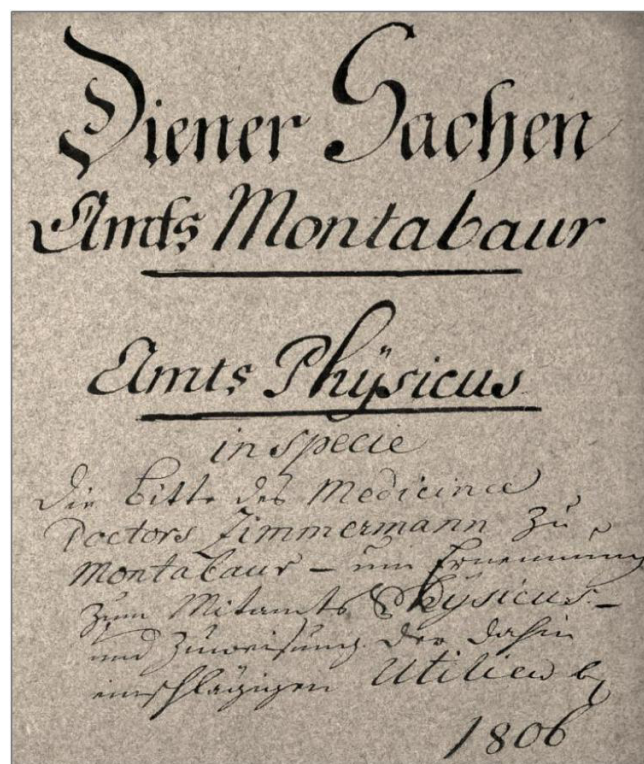 Diener Sachen
Amts Montabaur
Amts Phÿsicus
in specie
die Bitte des Medicinae
Doctors Zimmermann zu
Montabaur – um Ernennung
zum Mitamts Physicus –
und Zuweisung der dahin
einschlägigen Utilien
1806